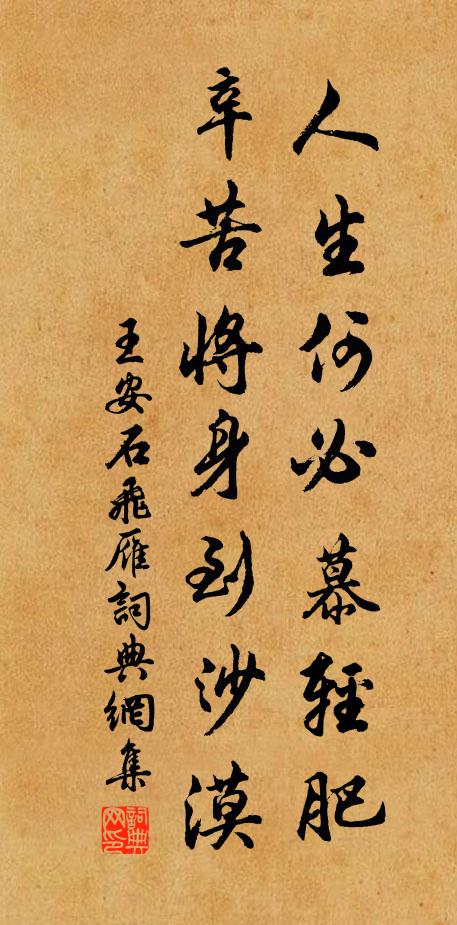 人生何必慕輕肥
辛苦將身到沙漠
王安石飛雁詞典網集
詞典
網印